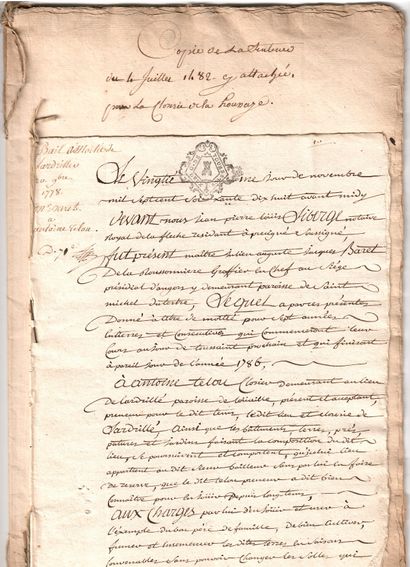 Copie de La
du 4 Juillet 1682 cy attachée
pour La Closerie de la
Bail
Lardrillé
20 9bre
1778
Mr Baret
à
antoine telou
Le Vingtieme Jour de novembre
mil sept cent Soixante dix huit avant midy
Devant nous Jean pierre Louis Siberge notaire
Royal de la fleche residant à precigné Soussigné
fut présent maitre Julien auguste Jacques Baret
De la Roussonniere Greffier en Chef au Siège
présidial d'angers y demeurant paroisse de Saint
michel du tertre, Lequel a par ces présentes
Donné à titre de moitié pour Sept années
entieres et Consecutives qui Commenceront Leur
Cours au Jour de toussaint prochain et qui finiront
à pareil Jour de L'année 1786,
à antoine telou Closier Demeurant au lieu
de lardrillé paroisse de, présent et acceptant,
preneur pour le dit tems, Le dit lieu et closerie de
Lardrillé, Ainsi que les bâtiments, terres, prés,
patures et Jardins faisant la Composition du dit
lieu, Se poursuivent et comportent,
appartient au dit Sieur bailleur Sans par lui En faire
de reserve, que Le dit telou preneur a dit bien
Connaître pour En Jouir Depuis longtems,
aux Charges par lui d'en Jouir et user à
L'exemple d'un bon père de famille, de bien Cultiver,
fumer et Ensemencer Les dites terres En Saisons
Convenables Sans pouvoir Changer Les Solles qui